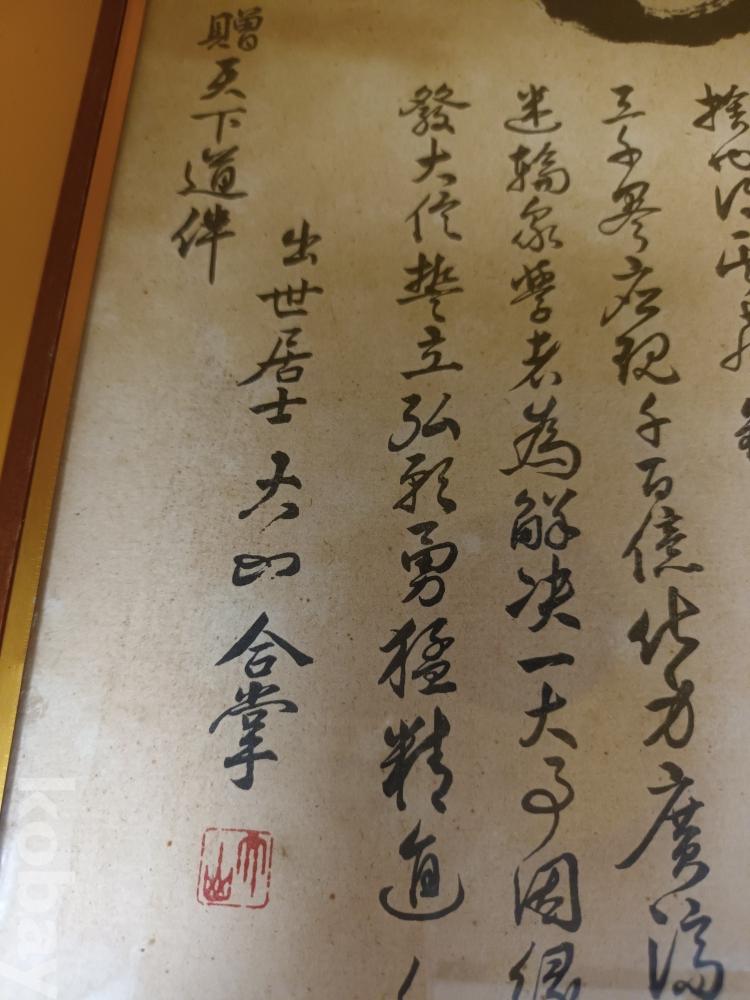 捨
三千界应现千百億化身廣濟
迷輪衆學者為解决一大事因緣
發大信誓立弘願勇猛精進
出世居士 大山 合掌
贈天下道伴
大山
kobay